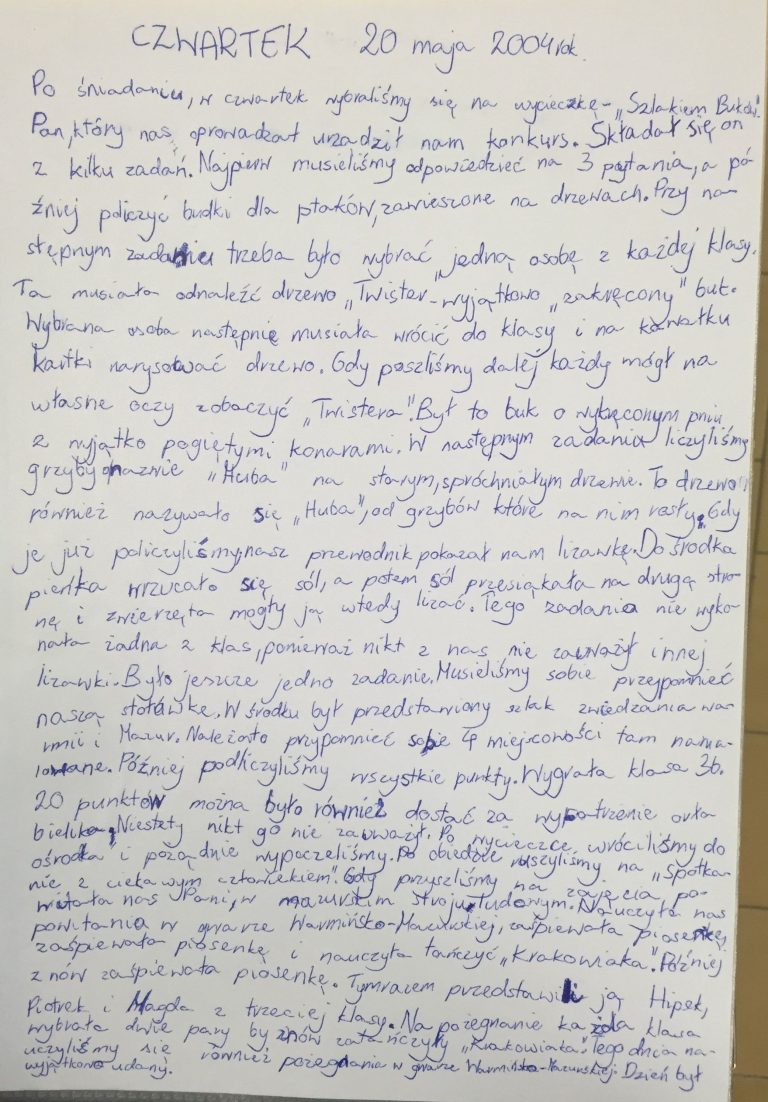 CZWARTEK 20 maja 2004rok.
Po śniadaniu, w czwartek wybraliśmy się na wycieczkę - „Szlakiem Buków".
Pan, który nas oprowadzał urządził nam konkurs. Składał się on
z kilku zadań. Najpierw musieliśmy odpowiedzieć na 3 pytania, a pó-
źniej policzyć budki dla ptaków, zawieszone na drzewach. Przy na-
stępnym zadaniu trzeba było wybrać jedną osobę z każdej klasy.
Ta musiała odnaleźć drzewo „Twister" - wyjątkowo „zakręcony" buk.
Wybrana osoba następnię musiała wrócić do klasy i na kawałku
kartki narysować drzewo. Gdy poszliśmy dalej każdy mógł na
własne oczy zobaczyć „Twistera". Był to buk o wykręconym pniu
z wyjątko pogiętymi konarami. W następnym zadaniu liczyliśmy
grzyby o nazwie „Huba" na starym, spróchniałym drzewie. To drzewo
również nazywało się „Huba", od grzybów które na nim rosły. Gdy
je już policzyliśmy, nasz przewodnik pokazał nam lizawkę. Do środka
pieńka wrzucało się sól, a potem sól przesiąkała na drugą stro-
nę i zwierzęta mogły ją wtedy lizać. Tego zadania nie wyko-
nała żadna z klas, ponieważ nikt z nas nie zauważył innej
lizawki. Było jeszcze jedno zadanie. Musieliśmy sobie przypomnieć
naszą stołówkę. W środku był przedstawiony szlak zwiedzania wa-
rmii i Mazur. Należało przypomnieć sobie 4 miejscowości tam nama-
lowane. Później podliczyliśmy wszystkie punkty. Wygrała klasa 3b.
20 punktów można było również dostać za wypatrzenie orła
bielika. Niestety nikt go nie zauważył. Po wycieczce wróciliśmy do
ośrodka i pożądnie wypoczeliśmy. Po obiedzie ruszyliśmy na „Spotka-
nie z ciekawym człowiekiem". Gdy przyszliśmy na zajęcia, po-
witała nas Pani, w mazurskim stroju ludowym. Nauczyła nas
powitania w gwarze Warmińsko-Mazurskiej, zaśpiewała piosenkę,
zaśpiewała piosenkę i nauczyła tańczyć „Krakowiaka". Później
znów zaśpiewała piosenkę. Tymrazem przedstawili ją Hipek,
Piotrek i Magda z trzeciej klasy. Na pożegnanie każda klasa
wybrała dwie pary by znów zatańczyły „Krakowiaka". Tego dnia na-
uczyliśmy się również pożegnania w gwarze Warmińsko-Mazurskiej. Dzień był
wyjątkowo udany.